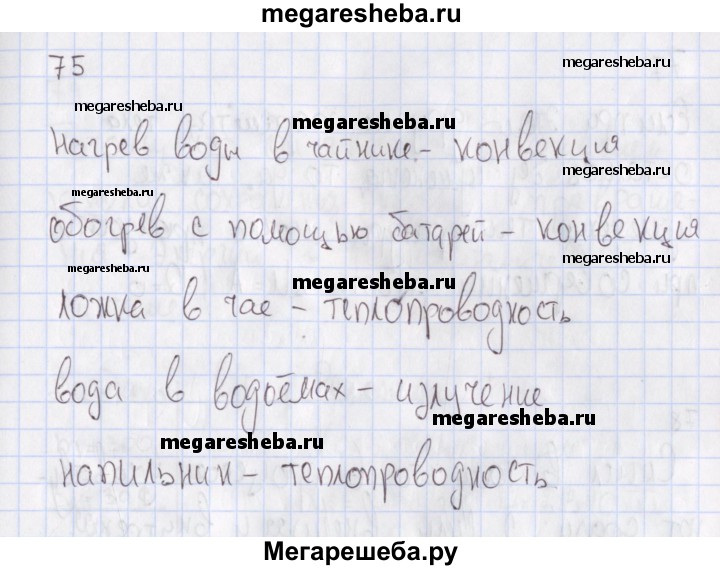 megaresheba.ru
75
megaresheba.ru
megaresheba.ru
megaresheba.ru
нагрев воды в чайнике - конвекция
megaresheba.ru
megaresheba.ru
обогрев с помощью батарей - конвекция
megaresheba.ru
megaresheba.ru
megaresheba.ru
ложка в чае - теплопроводность
вода в водоёмах - излучение
megaresheba.ru
megaresheba.ru
напильник - теплопроводность
Мегарешеба.ру